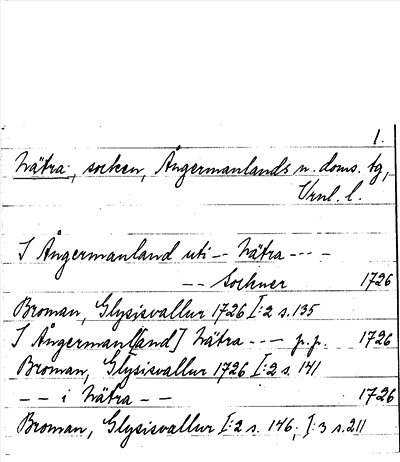 1.
Nätra, socken, Ångermanlands n. doms. tg,
Vrnl. l.
I Ångermanland uti -- Nätra ---
-- Sockner 1726
Broman, Glysisvallur 1726 I:2 s. 135
I Ångermanl[and] Nätra --- p.p. 1726
Broman, Glysisvallur 1726 I:2 s. 141
-- i Nätra -- 1726
Broman, Glysisvallur I:2 s. 146; I:3 s. 211